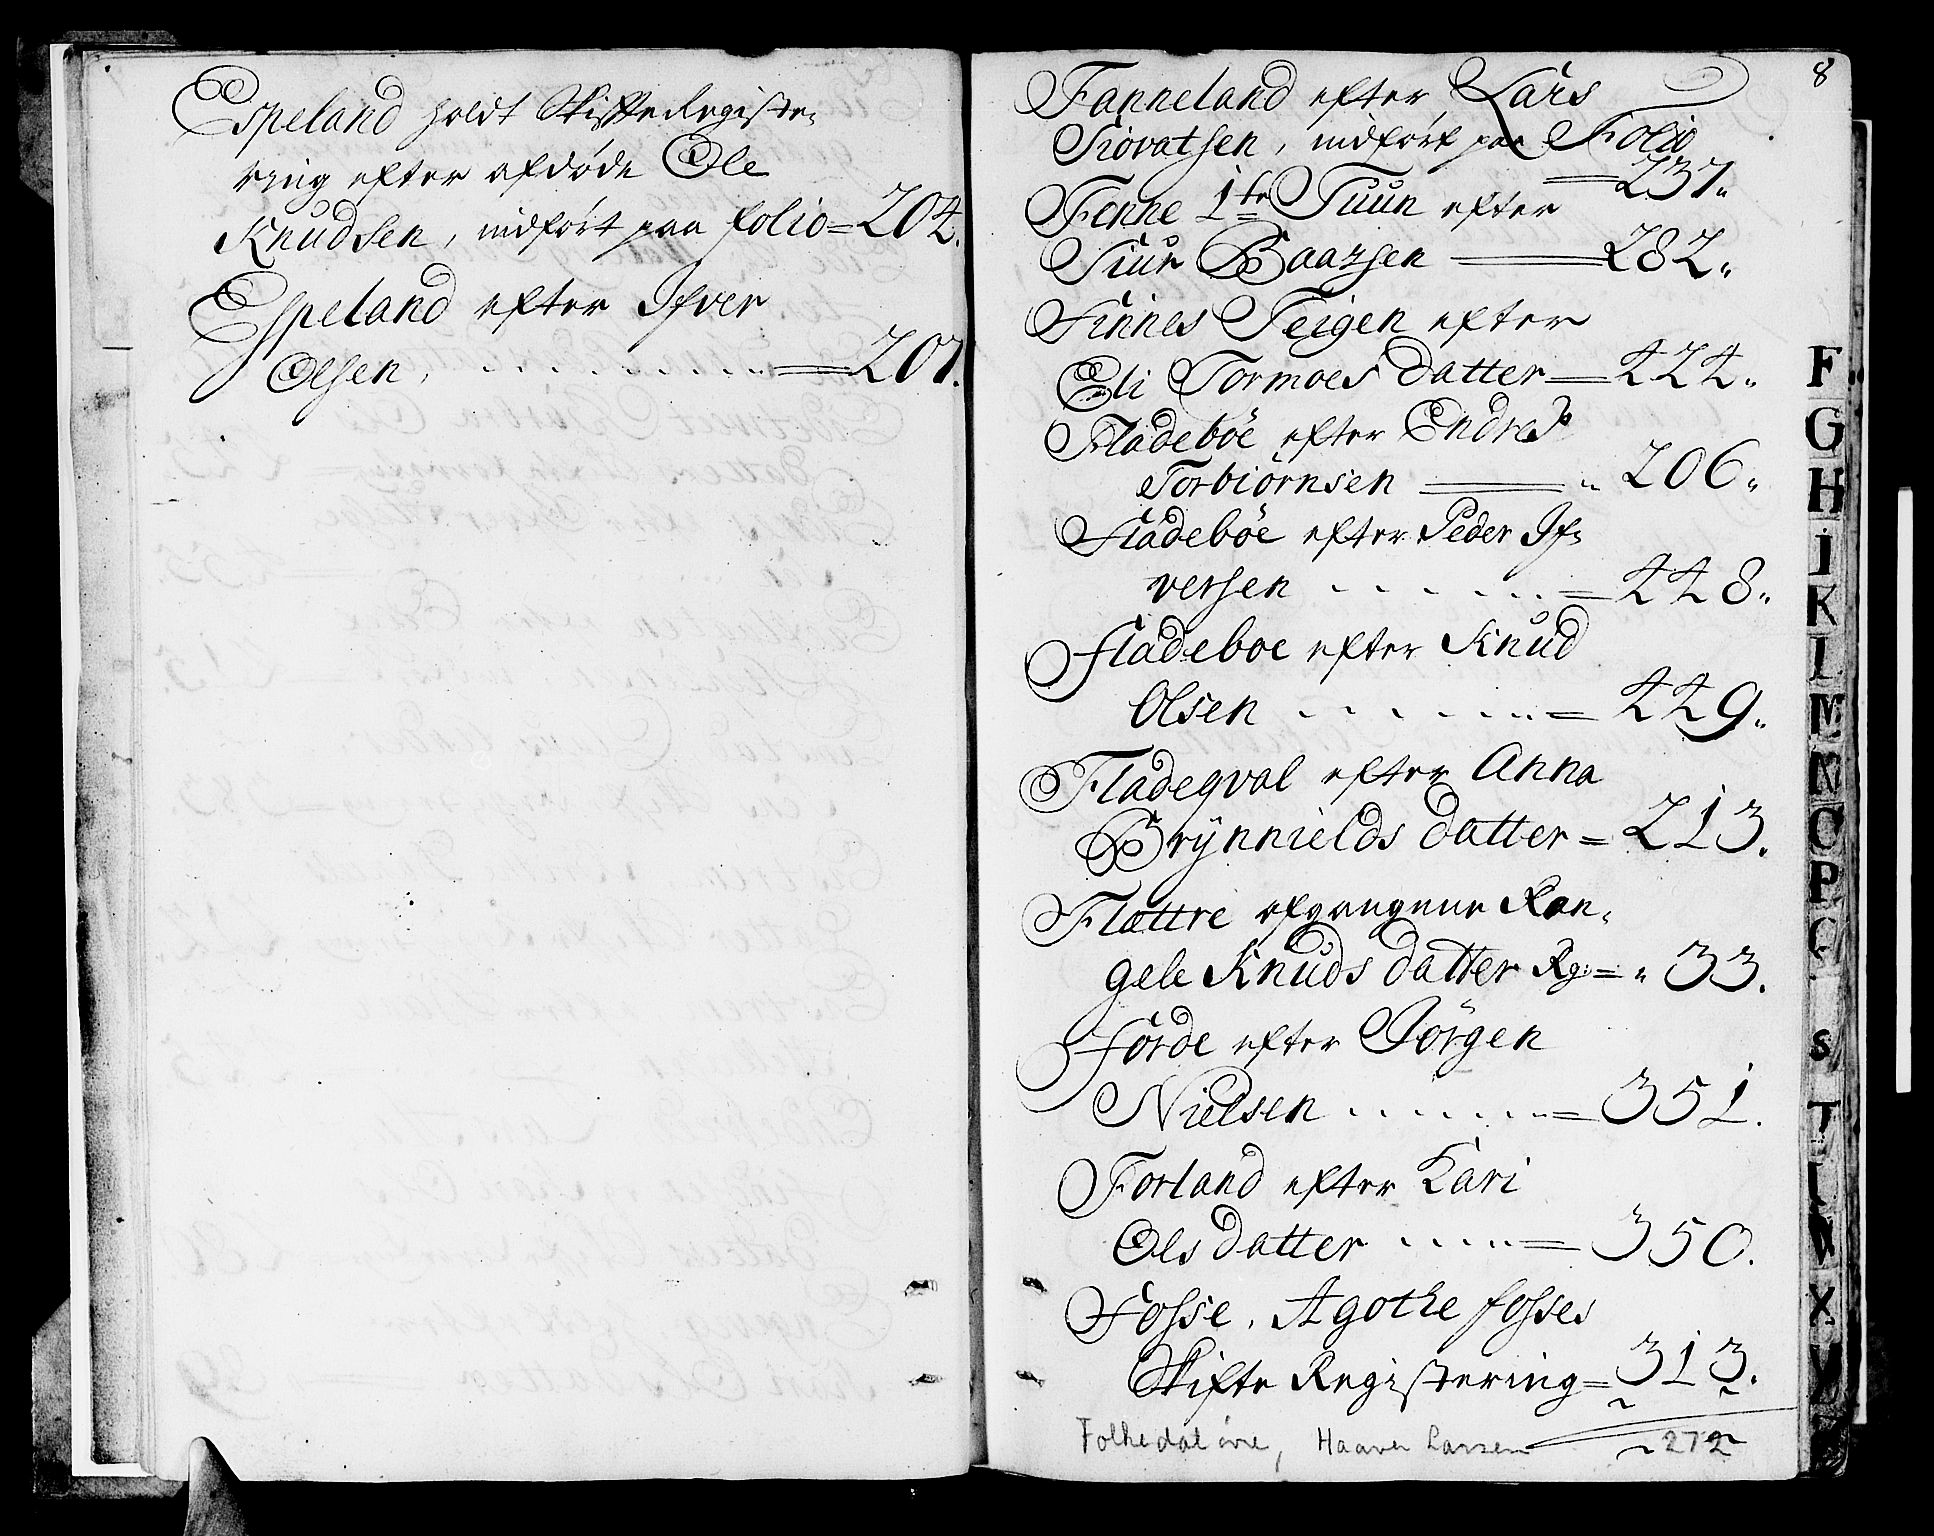 Espeland holdt Skifte Registe-
ring efter afdøde Ole
Knudsen, indført paa folio = 204.
Espeland efter Ifver
Olsen, = 207.
8
Fanneland efter Lars
Siovatsen, indført paa Folio
237.
Fenne 1te Tuun efter
Siur Baarsen 282.
Finnes Teigen efter
Eli Tormoes datter = 224.
Fladebøe efter Endre
Torbiørnsen 206.
Fladebøe efter Peder If-
versen = 228.
Fladeboe efter Knud
Olsen = 229.
Fladeqval efter Anna
Brÿnnields datter = 213.
Flattre afgangene Ran-
gele Knuds datter Rg: = 33.
Førde efter Jørgen
Nielsen = 351.
Forland efter Kari
Ols datter = 350.
Fosse, Agothe fosses
Skifte Registering = 313.
Folkedal øvre, Haaver Larsen 272
F
G
H
I
K
L
M
N
O
P
Q
S
T
X